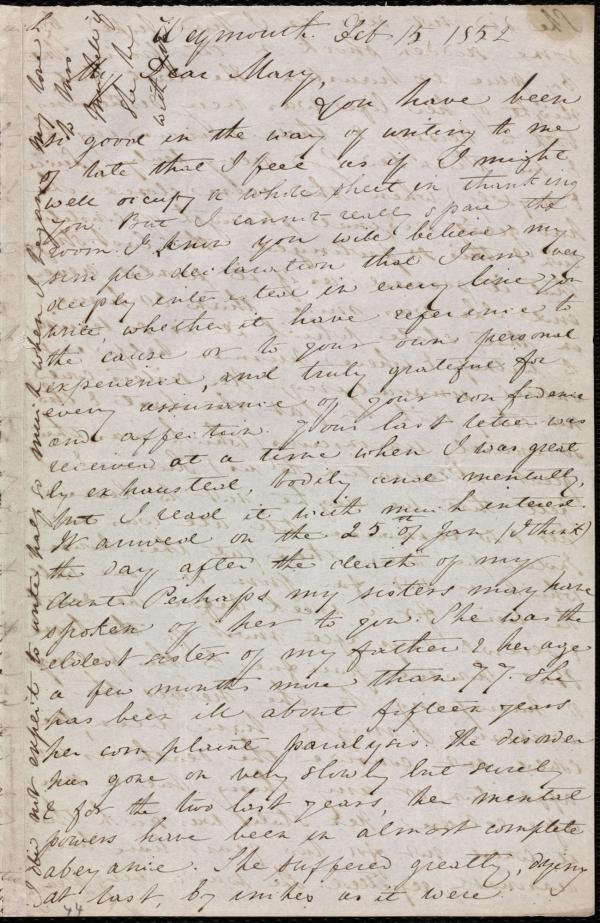 Weymouth. Feb 15 1852
My Dear Mary,
You have been
so good in the way of writing to me
of late that I feel as if I might
well occupy a whole sheet in thanking
you. But I cannot really spare the
room. I know you will believe my
simple declaration that I am very
deeply interested in every line you
write, whether it have reference to
the cause or to your own personal
experience, and truly grateful for
every assurance of your confidence
and affection. Your last letter was
received at a time when I was great
ly exhausted, bodily and mentally,
but I read it with much interest.
It arrived on the 25th of Jan (I think)
the day after the death of my
Aunt. Perhaps my sisters may have
spoken of her to you. She was the
eldest sister of my father & her age
a few months more than 77. She
has been ill about fifteen years
her complaint paralysis. The disorder
has gone on very slowly but surely
& for the two last years, her mental
powers have been in almost complete
abeyance. She suffered greatly, dying
at last, by inches as it were.
I did not expect to write half so much when I began. My love
to Miss
if she be
with you
44